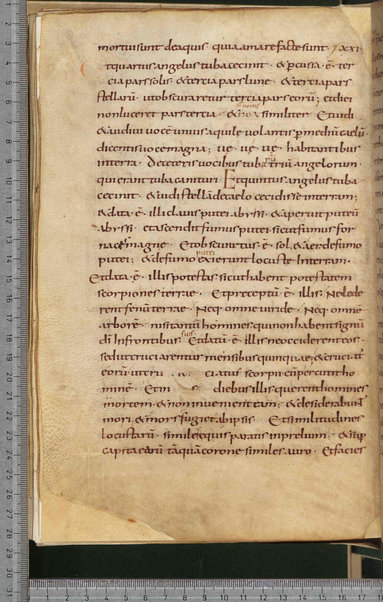 mortui sunt de aquis quia amare facte sunt
& quartus angelus tuba cecinit · & pcussa · ē · ter
cia pars solis & tercia pars lune · & tercia pars
stellarū · ut obscuraretur tertia pars eorū · et diei
non luceret pars tercia · & noctis similiter · Et uidi
& audiui uocē unius aquile uolantis p mediū caelū
dicentis uoce magna · ue · ue · ue · habitantibus
in terra · De ceteris uocibus tuba triū angelorum ·
qui erant tuba canituri · Et quintus angelus tuba
cecinit · & uidi stellā de caelo cecidisse in terram ·
& data · ē · illi clauis putei abyssi · & aperuit puteū
abyssi · et ascendit fumus putei sicut fumus for
nacis magne · Et obscuratus · ē · sol · & aer de fumo
putei · & de fumo putei exierunt locuste in terram ·
Et data · ē · illis potestas sicut habent potestatem
scorpiones terrae · Et preceptū · ē · illis · Ne lede
rent fenū terrae · Neq · omne uiride · Neq · omne
arborē · nisi tantū homines qui non habent signū
dī in frontibus suis · Et datū · ē · illis ne occiderent eos ·
sed ut cruciarentur mensibus quinque · & cruciat
eorū ut cru ciatus scorpii cū percutit ho
minē · Et in diebus illis querent homines
mortem · & non inuenient eam · & desiderabunt
mori · & mors fugiet ab ipsis · Et similitudines
locustarū · similes equis paratis in prelium · & sup
capita earū tāquā corone similes auro · Et facies
1 2 3 4 5 6 7 8 9 10 11 12 13 14 15 16 17